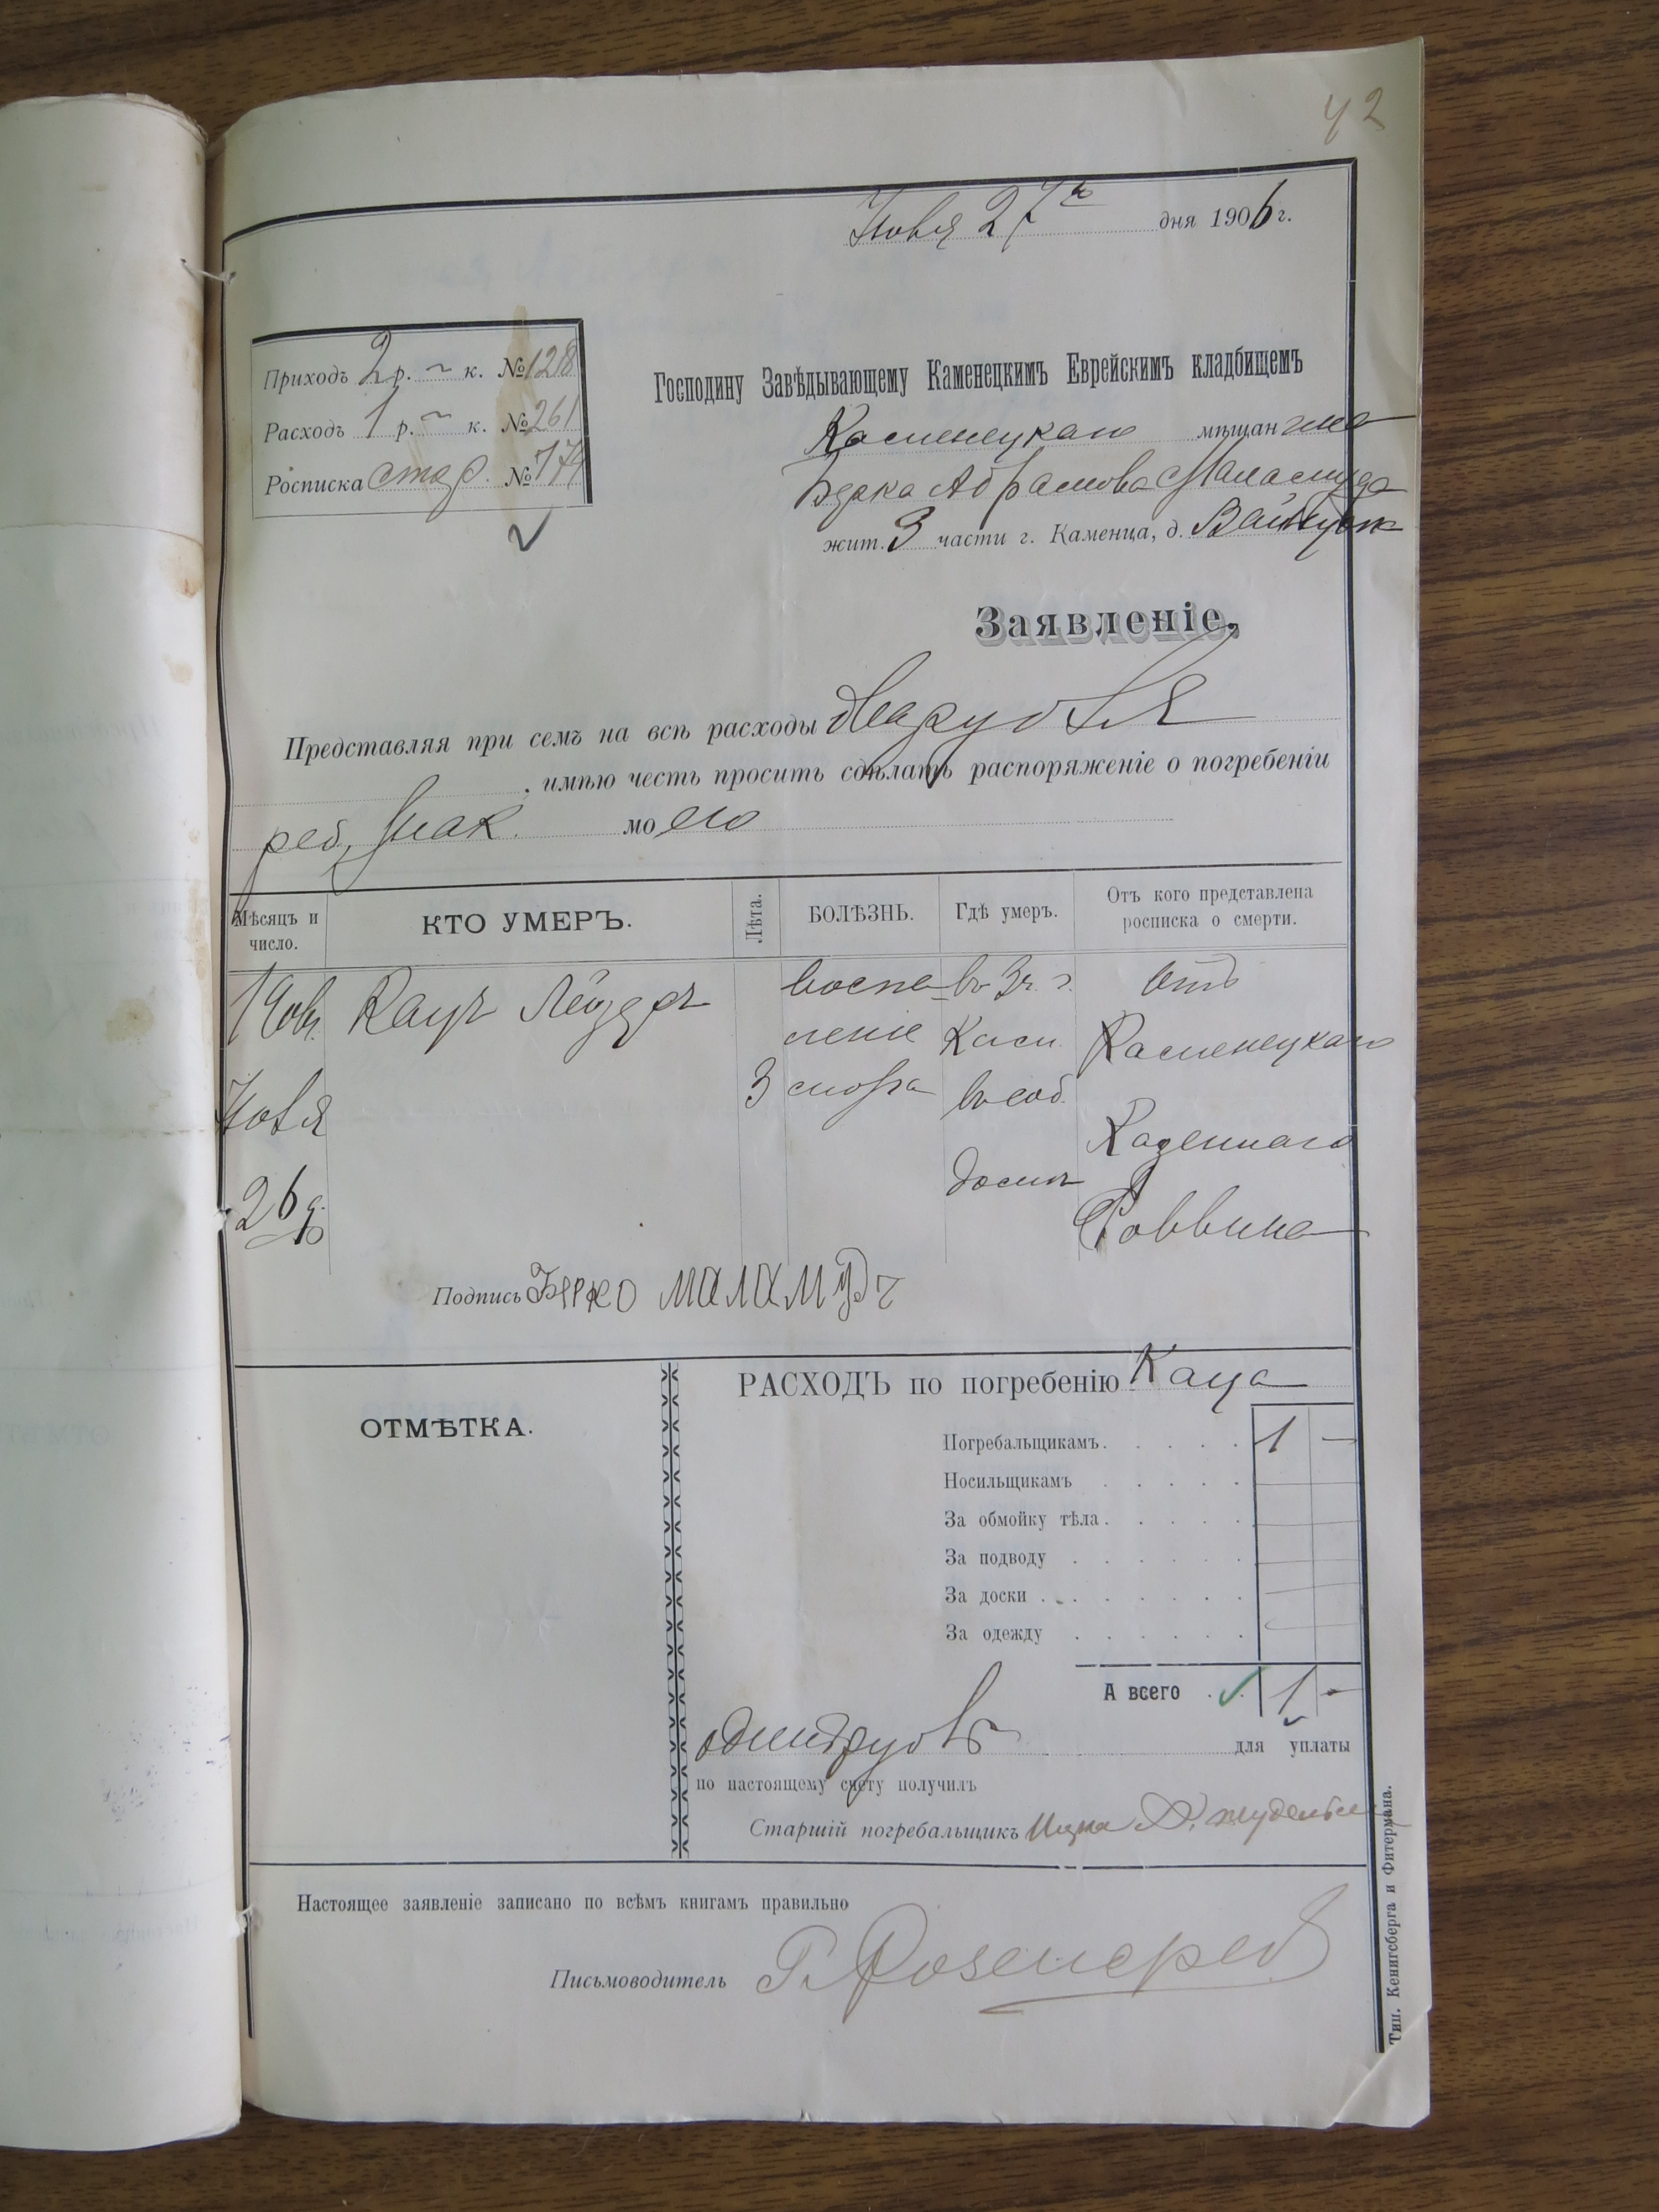 42
дня 1906 г.
Приходъ 2 р. ~ к. № 128
Расходъ 1 р. ~ к. № 261
Росписка стар. № 174
Господину Завѣдывающему Каменецкимъ Еврейскимъ кладбищемъ
Каменецкаго мѣщанина
Берка Абрамова Маламуда
жит. 3 части г. Каменца, д.
Заявленіе.
Представляя при семъ на всѣ расходы два рубля
, имѣю честь просить сдѣлать распоряженіе о погребеніи
реб. моего
Мѣсяцъ и число.
КТО УМЕРЪ.
Лѣта.
БОЛѢЗНЬ.
Гдѣ умеръ.
Отъ кого представлена росписка о смерти.
Кацъ Лейзеръ
3
воспа-
леніе
мозга
въ 3 ч. г.
Кам.
въ соб.
домѣ
Отъ
Каменецкаго
Казеннаго
Раввина
26
Подпись Берко Маламудъ
ОТМѢТКА.
РАСХОДЪ по погребенію Каца
Погребальщикамъ. 1 —
Носильщикамъ
За обмойку тѣла.
За подводу
За доски
За одежду
А всего 1 -
одинъ рубль для уплаты
по настоящему счету получилъ
Старшій погребальщикъ
Настоящее заявленіе записано по всѣмъ книгамъ правильно
Письмоводитель
Тип. Кенигсберга и Фитермана.